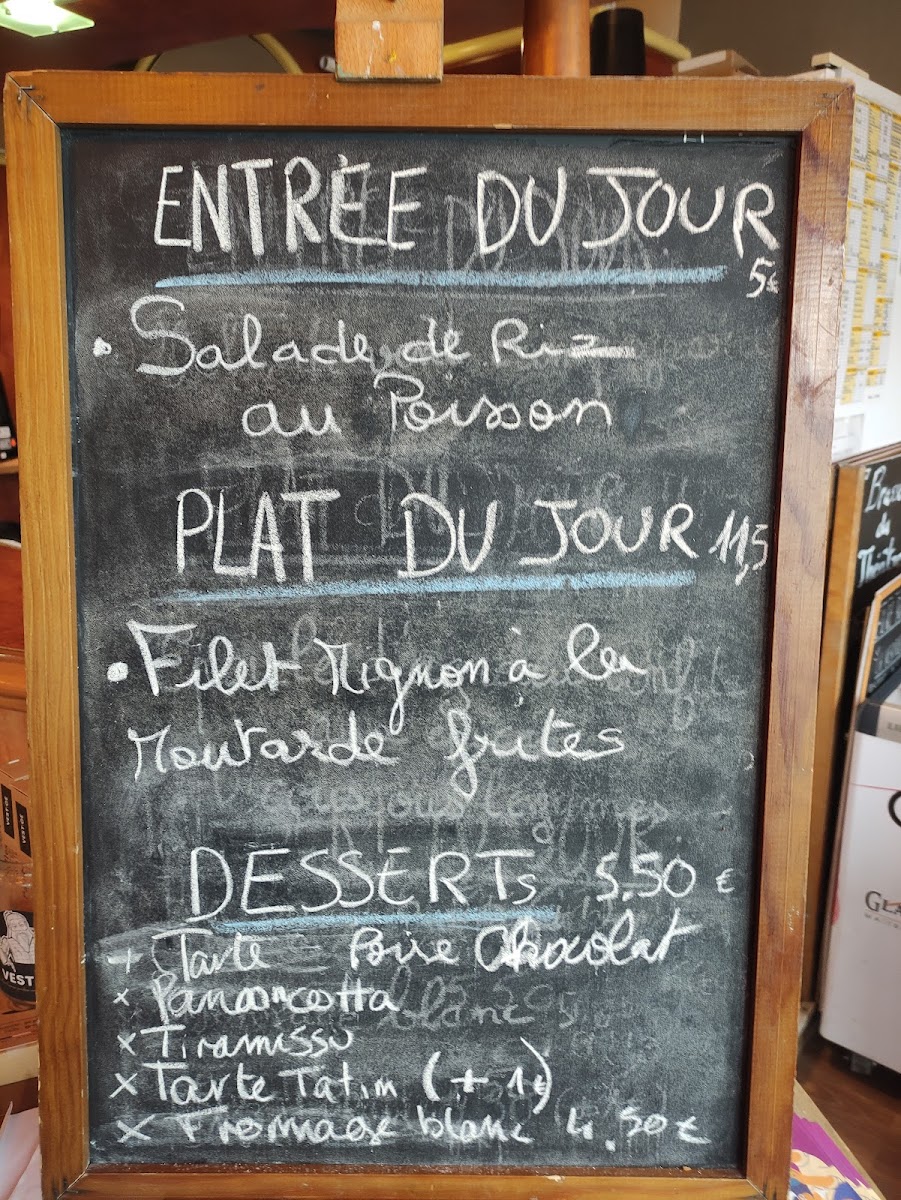 ENTRÉE DU JOUR
5€
• Salade de Riz
au Poisson
PLAT DU JOUR 11,5
• Filet Mignon à la
Moutarde frites
DESSERTS 5.50 €
+ Tarte Poire Chocolat
x Panacotta
x Tiramissu
x Tarte Tatin (+ 1€)
x Fromage blanc 4.50 €
VEST